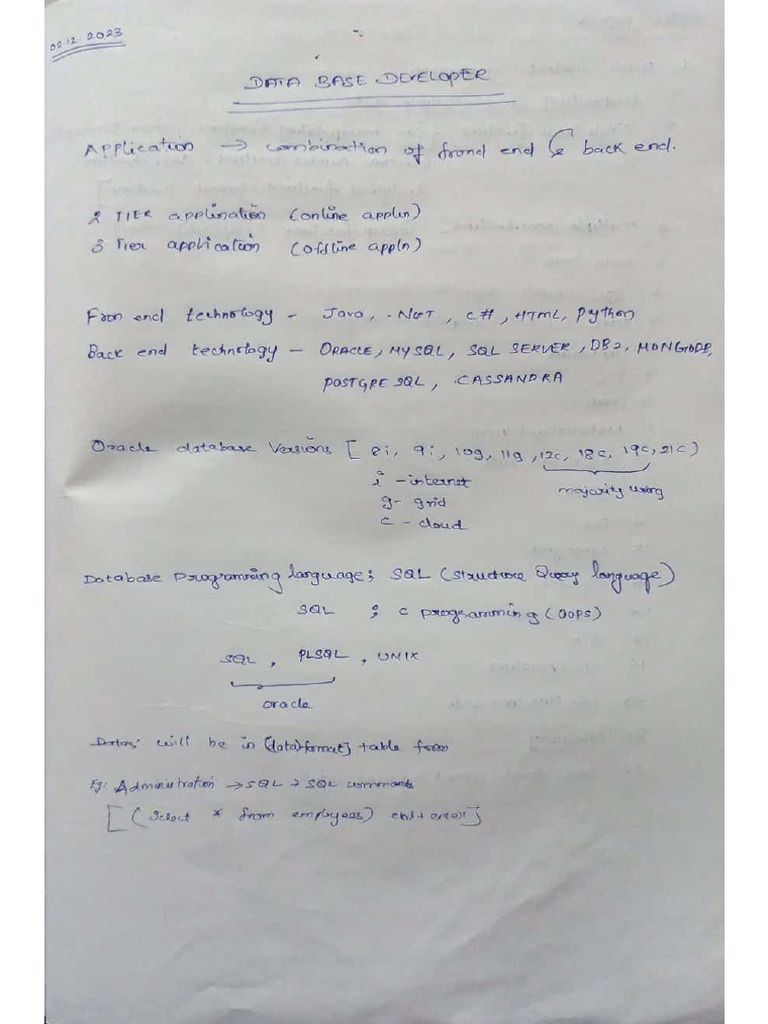 02.12.2023
DATA BASE DEVELOPER
Application → combination of frond end & back end.
2 TIER application (online appln)
3 Tier application (Offline appln)
Fron end technology - Java, .NET, C#, HTML, Python
Back end technology - ORACLE, MYSQL, SQL SERVER, DB2, MONGODB,
POSTGRE SQL, CASSANDRA
Oracle database Versions [8i, 9i, 10g, 11g, 12c, 18c, 19c, 21c)
i - internet
g - grid majority using
c - cloud
Database Programming language; SQL (Structure Query language)
SQL ; C programming (OOPS)
SQL, PLSQL, UNIX
oracle
will be in [data format] table from
Eg: Administration → SQL → SQL commands
[(Select * from employees) ctrl + enter]